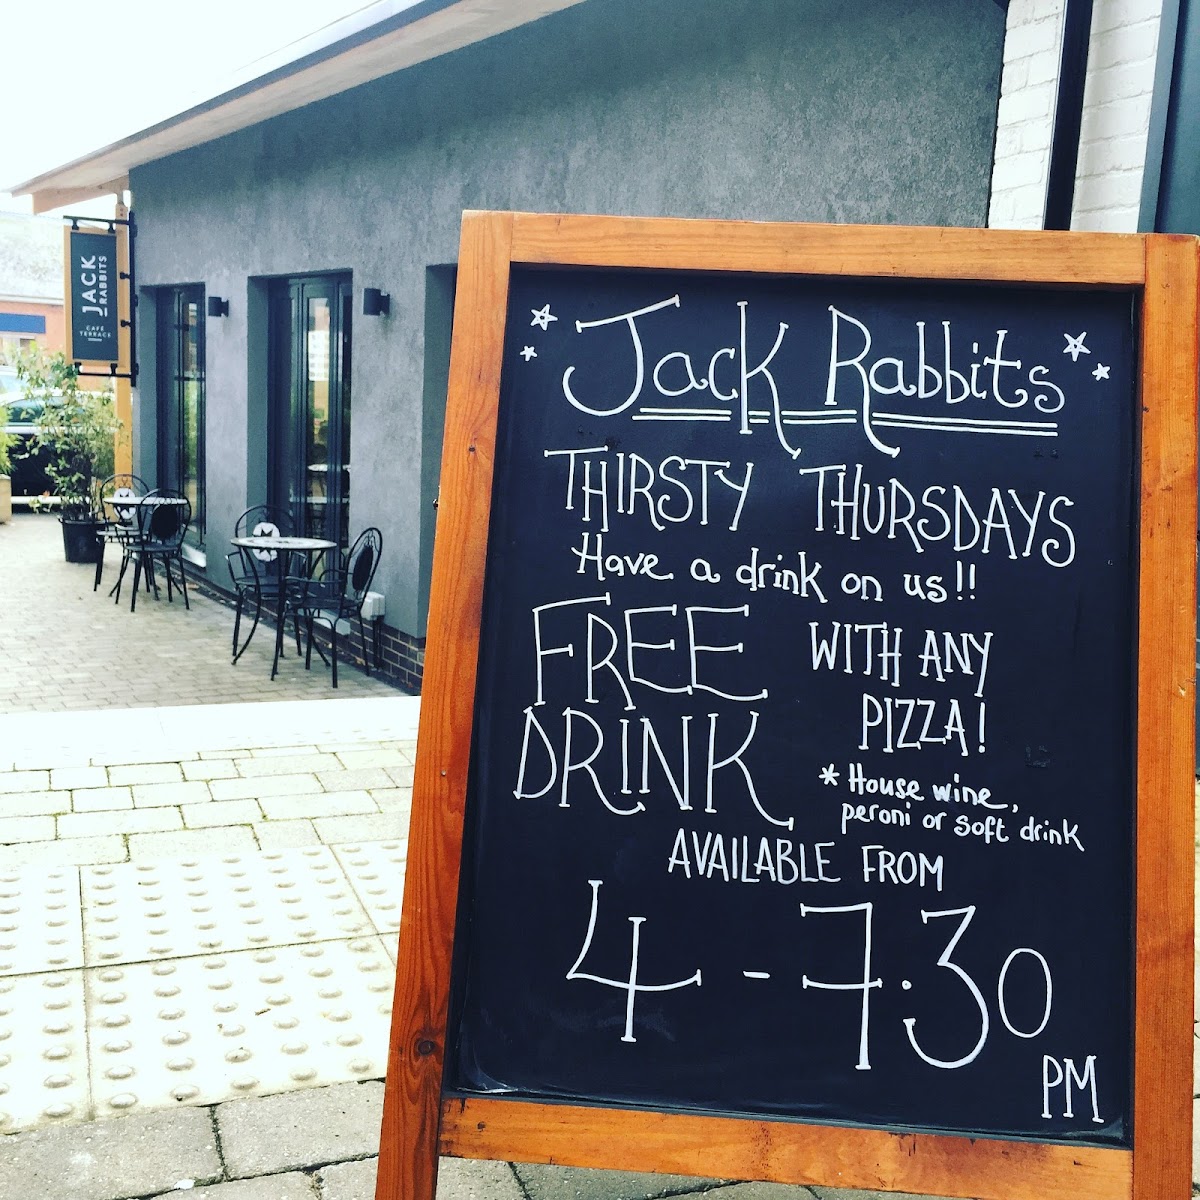 JACK
RABBITS
CAFÉ
TERRACE
Jack Rabbits
THIRSTY THURSDAYS
Have a drink on us!!
FREE WITH ANY
DRINK PIZZA!
* House wine,
peroni or soft drink
AVAILABLE FROM
4 - 7:30
PM